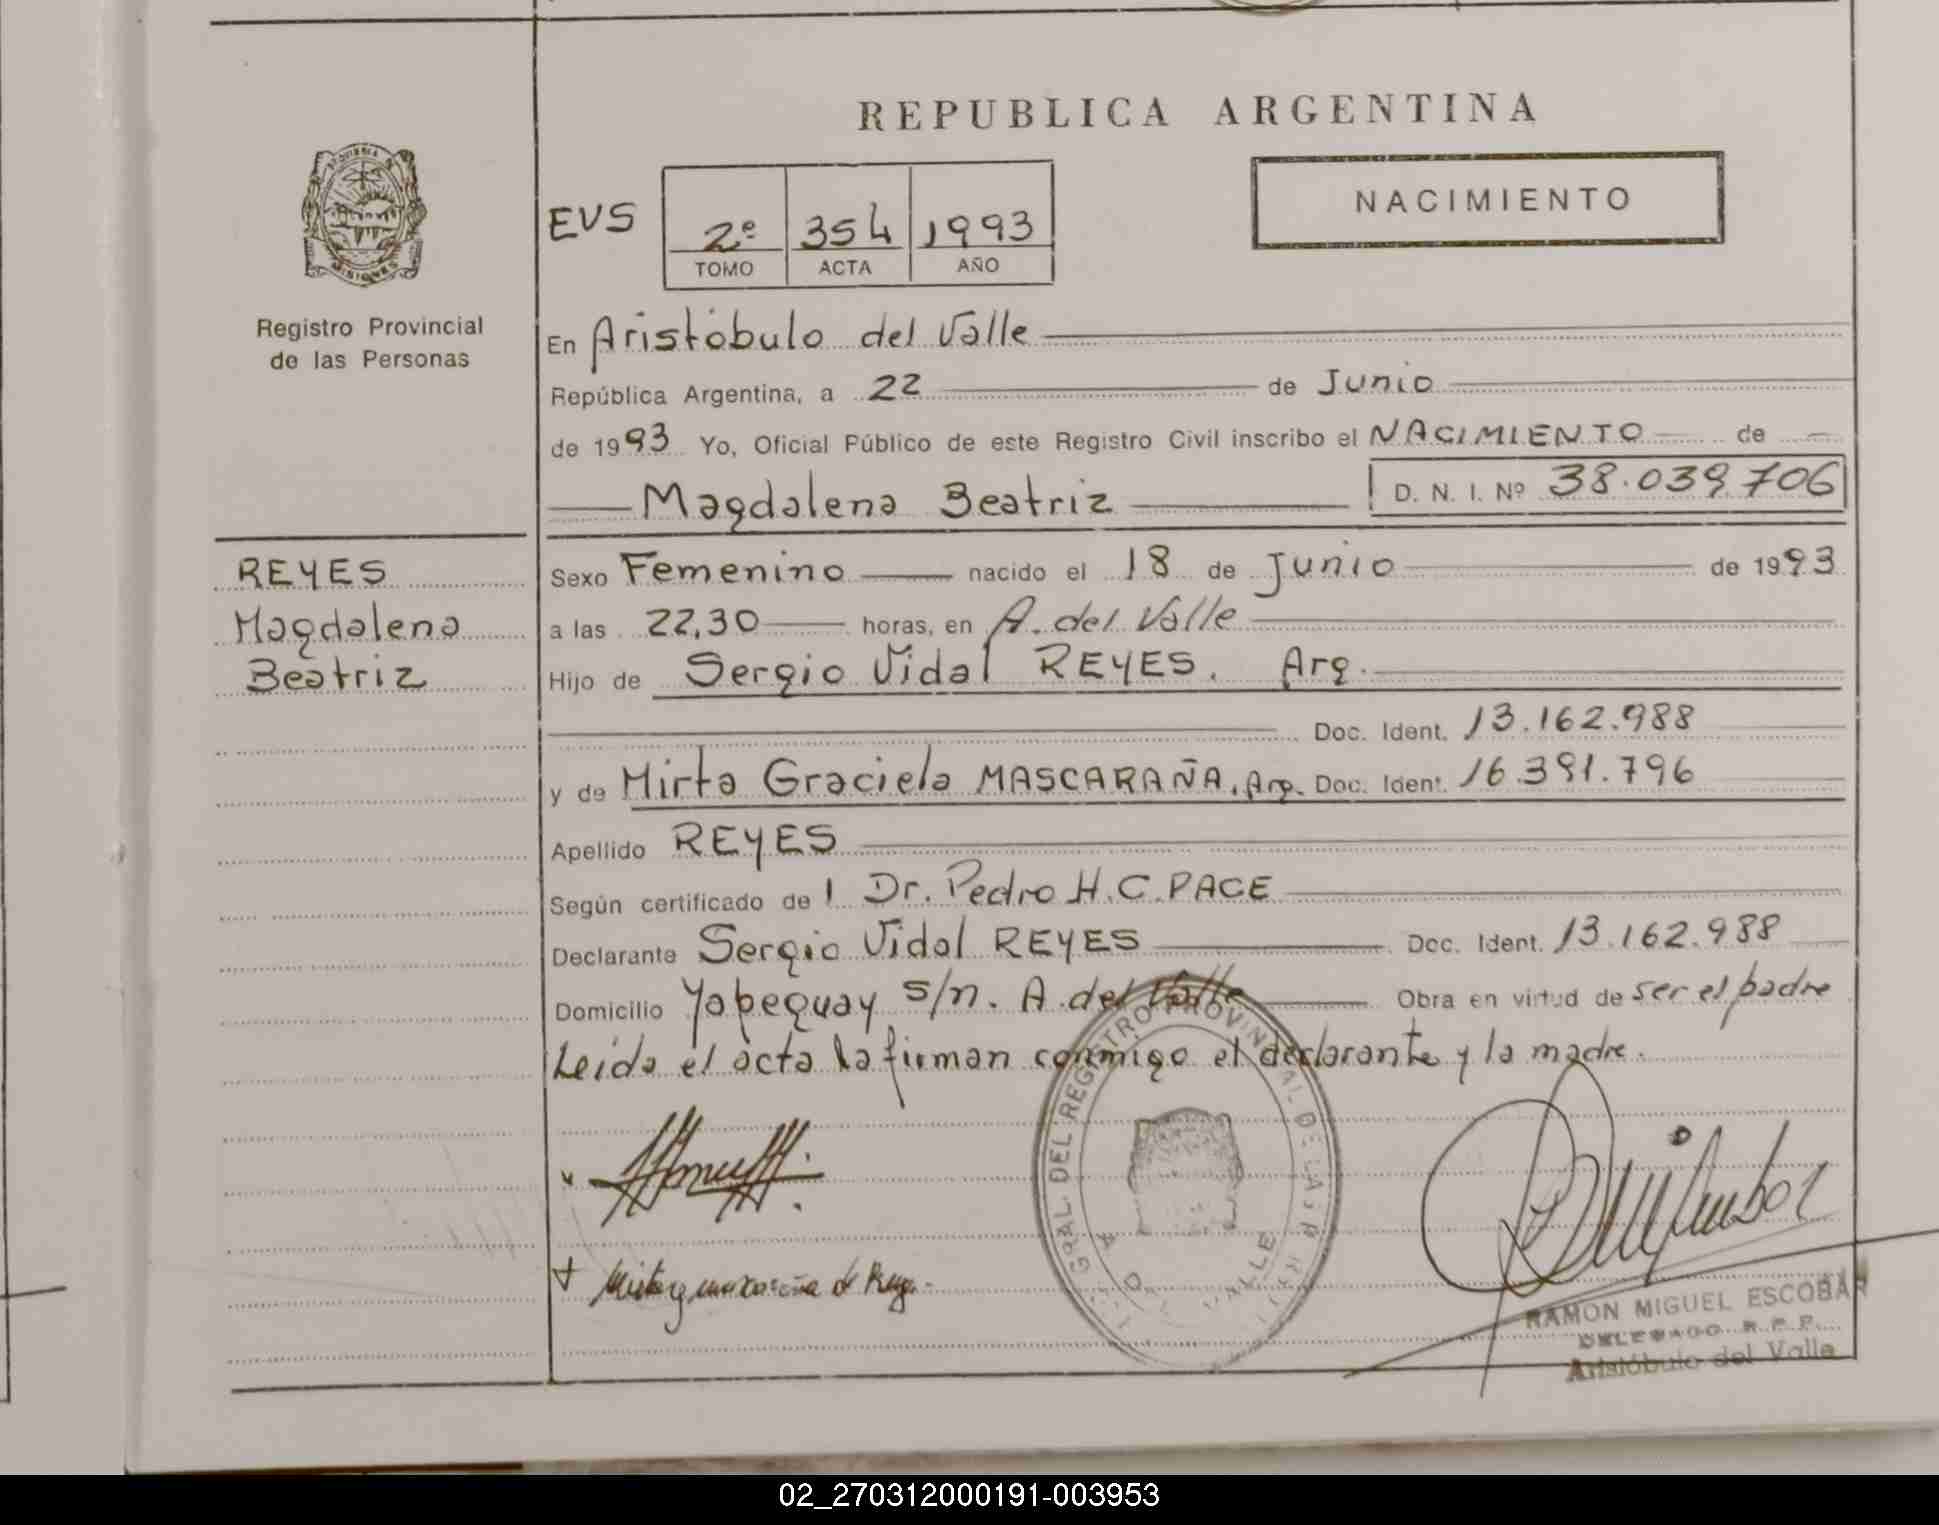 REPUBLICA ARGENTINA
MISIONES
Registro Provincial
de las Personas
EVS
2º 354 1993
TOMO ACTA AÑO
NACIMIENTO
En Aristóbulo del Valle
República Argentina, a 22 de Junio
de 1993 Yo, Oficial Público de este Registro Civil inscribo el NACIMIENTO de
Magdalena Beatriz D. N. I. Nº 38.039.706
REYES
Magdalena
Beatriz
Sexo Femenino nacido el 18 de Junio de 1993
a las 22,30 horas, en A. del Valle
Hijo de Sergio Vidal REYES. Arg.
Doc. Ident. 13.162.988
y de Mirta Graciela MASCARAÑA. Arg. Doc. Ident. 16.391.796
Apellido REYES
Según certificado de l Dr. Pedro H.C. PACE
Declarante Sergio Vidal REYES Doc. Ident. 13.162.988
Domicilio Yabeguay s/n. A. del Valle Obra en virtud de ser el padre
Leída el acta la firman conmigo el declarante y la madre.
GRAL. DEL REGISTRO PROVINCIAL DE LAS
VALLE
RAMON MIGUEL ESCOBAR
DELEGADO R.P.P.
Aristóbulo del Valle
02_270312000191-003953